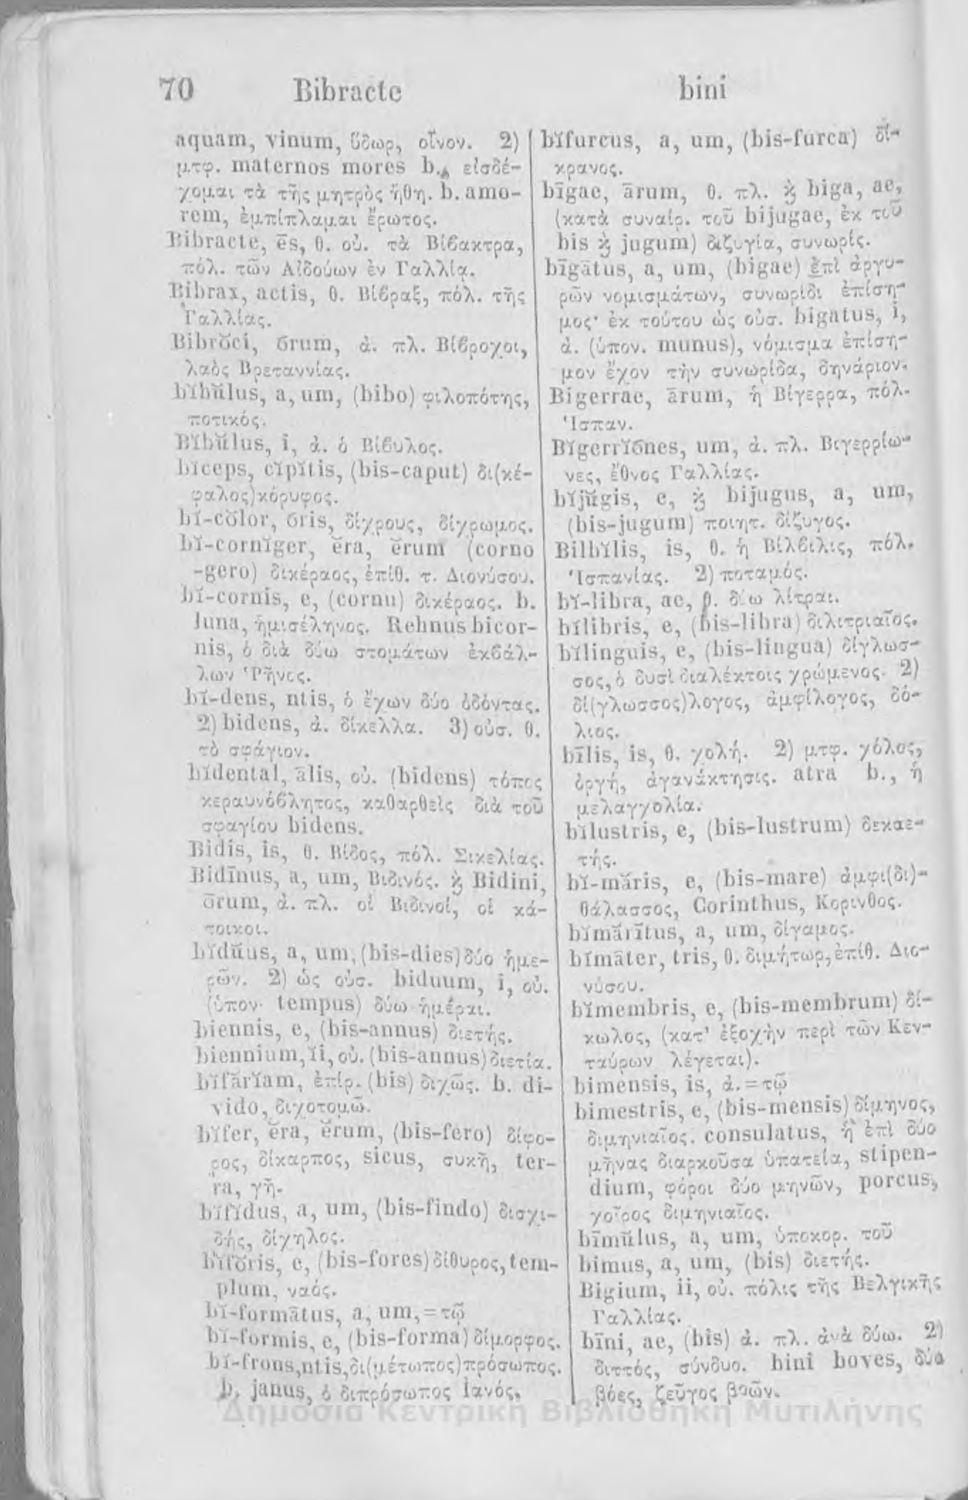 70 Bibracte bini
aquam, vinum, ὕδωρ, οἶνον. 2)
μτφ. maternos mores b., εἰσδέ-
χομαι τὰ τῆς μητρὸς ἤθη. b. amo-
rem, ἐμπίπλαμαι ἔρωτος.
Bibracte, ēs, θ. οὐ. τὰ Βίβακτρα,
πόλ. τῶν Αἰδούων ἐν Γαλλίᾳ.
Bibrax, actis, θ. Βίβραξ, πόλ. τῆς
Γαλλίας.
Bibrŏci, ōrum, ἀ. πλ. Βίβροχοι,
λαὸς Βρεταννίας.
bĭbŭlus, a, um, (bibo) φιλοπότης,
ποτικός.
Bĭbŭlus, i, ἀ. ὁ Βίβυλος.
bĭceps, cĭpĭtis, (bis-caput) δι(κέ-
φαλος)κόρυφος.
bĭ-cŏlor, ōris, δίχρους, δίχρωμος.
bĭ-cornĭger, ĕra, ĕrum (corno
-gero) δικέραος, ἐπίθ. τ. Διονύσου.
bĭ-cornis, e, (cornu) δικέραος. b.
luna, ἡμισέληνος. Rehnus bicor-
nis, ὁ διὰ δύω στομάτων ἐκβάλ-
λων Ῥῆνος.
bĭ-dens, ntis, ὁ ἔχων δύο ὀδόντας.
2) bidens, ἀ. δίκελλα. 3) οὐσ. θ.
τὸ σφάγιον.
bĭdental, ālis, οὐ. (bidens) τόπος
κεραυνόβλητος, καθαρθεὶς διὰ τοῦ
σφαγίου bidens.
Bidis, is, θ. Βίδος, πόλ. Σικελίας.
Bidīnus, a, um, Βιδινός. ϗ Bidini,
ōrum, ἀ. πλ. οἱ Βιδινοί, οἱ κά-
τοικοι.
bĭdŭus, a, um, (bis-dies) δύο ἡμε-
ρῶν. 2) ὡς οὐσ. biduum, i, οὐ.
(ὑπον. tempus) δύω ἡμέραι.
biennis, e, (bis-annus) διετής.
biennium, ĭi, οὐ. (bis-annus) διετία.
bĭfārĭam, ἐπίρ. (bis) διχῶς. b. di-
vido, διχοτομῶ.
bĭfer, ĕra, ĕrum, (bis-fero) δίφο-
ρος, δίκαρπος, sicus, συκῆ, ter-
ra, γῆ.
bĭfĭdus, a, um, (bis-findo) δισχι-
δής, δίχηλος.
bĭfŏris, e, (bis-fores) δίθυρος, tem-
plum, ναός.
bĭ-formātus, a, um, = τῷ
bĭ-formis, e, (bis-forma) δίμορφος.
bĭ-frons, ntis, δι(μέτωπος)πρόσωπος.
b. janus, ὁ διπρόσωπος Ἰανός.
bĭfurcus, a, um, (bis-furca) δί-
κρανος.
bīgae, ārum, θ. πλ. ϗ biga, ae,
(κατὰ συναίρ. τοῦ bijugae, ἐκ τοῦ
bis ϗ jugum) διζυγία, συνωρίς.
bīgātus, a, um, (bigae) ἐπὶ ἀργυ-
ρῶν νομισμάτων, συνωρίδι ἐπίση-
μος· ἐκ τούτου ὡς οὐσ. bigatus, i,
ἀ. (ὑπον. munus), νόμισμα ἐπίση-
μον ἔχον τὴν συνωρίδα, δηνάριον.
Bigerrae, ārum, ἡ Βίγερρα, πόλ.
Ἱσπαν.
Bĭgerrĭōnes, um, ἀ. πλ. Βιγερρίω-
νες, ἔθνος Γαλλίας.
bĭjŭgis, e, ϗ bijugus, a, um,
(bis-jugum) ποιητ. δίζυγος.
Bilbĭlis, is, θ. ἡ Βίλβιλις, πόλ.
Ἱσπανίας. 2) ποταμός.
bĭ-libra, ae, θ. δύω λίτραι.
bĭlibris, e, (bis-libra) διλιτριαῖος.
bĭlinguis, e, (bis-lingua) δίγλωσ-
σος, ὁ δυσὶ διαλέκτοις χρώμενος. 2)
δί(γλωσσος)λογος, ἀμφίλογος, δό-
λιος.
bīlis, is, θ. χολή. 2) μτφ. χόλος,
ὀργή, ἀγανάκτησις. atra b., ἡ
μελαγχολία.
bĭlustris, e, (bis-lustrum) δεκαε-
τής.
bĭ-māris, e, (bis-mare) ἀμφι(δι)-
θάλασσος, Corinthus, Κορινθος.
bĭmārītus, a, um, δίγαμος.
bĭmāter, tris, θ. διμήτωρ, ἐπίθ. Διο-
νύσου.
bĭmembris, e, (bis-membrum) δί-
κωλος, (κατ' ἐξοχὴν περὶ τῶν Κεν-
ταύρων λέγεται).
bimensis, is, ἀ. = τῷ
bimestris, e, (bis-mensis) δίμηνος,
διμηνιαῖος. consulatus, ἡ ἐπὶ δύο
μῆνας διαρκοῦσα ὑπατεία, stipen-
dium, φόροι δύο μηνῶν, porcus,
χοῖρος διμηνιαῖος.
bīmŭlus, a, um, ὑποκορ. τοῦ
bimus, a, um, (bis) διετής.
Bigium, ii, οὐ. πόλις τῆς Βελγικῆς
Γαλλίας.
bīni, ae, (bis) ἀ. πλ. ἀνὰ δύω. 2)
διττός, σύνδυο. bini boves, δύο
βόες, ζεῦγος βοῶν.
Δημόσια Κεντρική Βιβλιοθήκη Μυτιλήνης